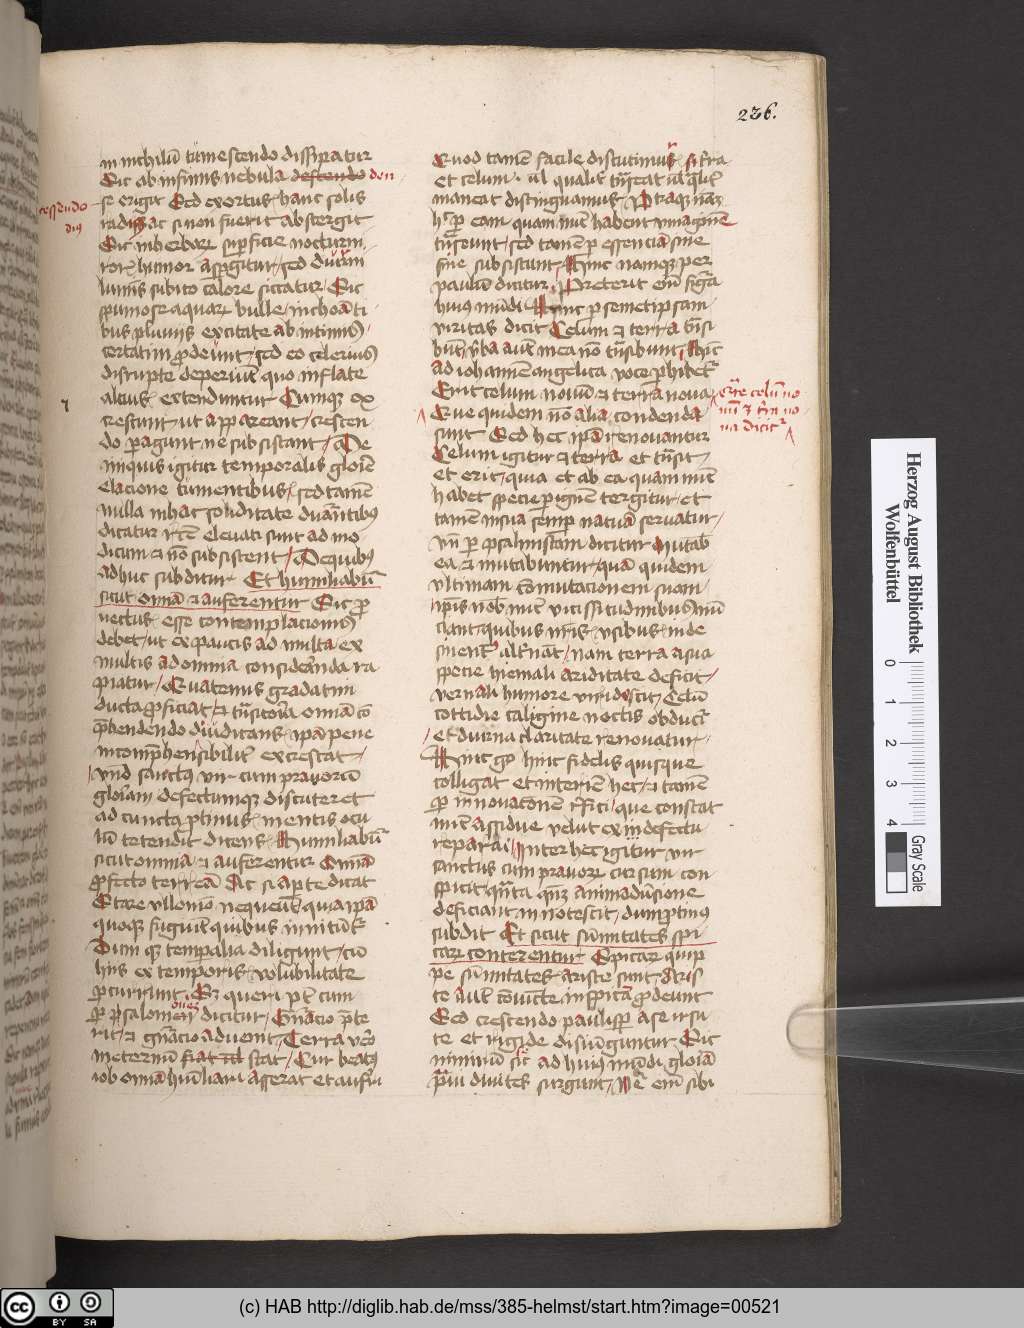 236.
in nichilū tumescendo dissipatur
Sic ab infimis nebula descendo den
cessendo
diꝰ
se erigit Sed exortus hanc solis
radiꝰ ac si non fuerit abstergit
Sic in herbarꝫ superficie nocturni
roris humor aspergitur / sed diurni
luminis subito calore siccatur Sic
spumose aquarꝫ bulle inchoāti
bus pluuiis excitate ab intimis
certatim prodeūt / sed eo celerius
disrupte depereūt quo inflate
altius extenduntur Cumqꝫ ex
crescunt ut appareant / crescen
do peragunt ne subsistant / De
iniquis igitur temporalis glorie
elacione tumentibus / sed tamē
nulla in hac soliditate durātibꝰ
dicatur
eleuati sunt ad mo
dicum et nō subsistent / De quibꝰ
adhuc subditur Et humiliabūt
sicut omīa et auferentur Sic pro
uectus esse contemplacionis
debet / ut ex paucis ad multa / ex
multis ad omnia consideranda ra
piatur / Quatenus gradatim
ducta proficiat / et transitoria omīa cō
prehendendo diiudicans ipa pene
incomprehensibiliter excrescat /
vnd sanctus vir cum prauorū
gloriam defectumqꝫ discuteret
ad cuncta protinus mentis ocu
lū tetendit dicens Humiliabūt
sicut omnia et auferentur Omīa
profecto terrea Sic si aperte dicat
Stare
nequeūt quia ipa
quoqꝫ fugiūt quibus innitūtur
Dum qꝫ temporalia diligunt / cū
hiis ex temporis volubilitate
percurrunt
queri potest cum
per psalomonē dicitur / Generacio prete
rit / et generacio aduenit / Terra vero
in eternū stat / Cur beatꝰ
iob omīa humiliari asserat et auferri
Quod tamē facile discutimus si terra
et celum vel qualiter transeat vel qualiter
maneat distinguamus Vtraqꝫ namqꝫ
hec per eam quam nunc habent ymaginē
transeunt / sed tamē per essenciā sine
fine subsistunt / Hinc namqꝫ per
paulū dicitur Preterit enim figura
huius mūdi Hinc per semetipsam
veritas dicit Celum et terra transi
bunt verba autem mea nō transibunt Hinc
ad iohannem angelica voce perhibetur
Erit celum nouū et terra noua
Que quidem nō alia condenda
sunt Sed hec ipa renouantur
Celum igitur et terra et transit /
et erit / quia et ab ea quam nunc
habet specie per ignem tergitur / et
tamē in sua semper natura seruatur /
vnde per psalmistam dicitur Mutab
ea et mutabuntur / qua quidem
vltimam cōmutacionem suam
ipis nobis nunc vicissitudinibus nun
ciant quibus nostris vsibus inde
sinenter alternant / nam terra a sua
specie hiemali ariditate deficit /
vernali humore viridescit / Celū
cottidie caligine noctis obducitur
et diurna claritate renouatur /
Hinc ergo hinc fidelis quisque
colligat et interire hec / et tamē
per innouacionē refici / que constat
nunc assidue velut ex in defectu
reparari / Inter hec igitur vir
sanctus cum prauorꝫ cursum con
spicit / quanta qꝫ animaduersione
deficiant innotescit / dum protinꝰ
subdit Et sicut sūmitates spi
carꝫ conterentur Spicarꝫ quip
pe sūmitates ariste sunt / Aris
te autem coniuncte in spica prodeunt
Sed crescendo paulisper a se irsu
te et rigide disiunguntur Sic
nimirū sic ad huius mūdi gloriā
praui diuites surgunt /
enim sibi
celū no
uū et terra no
ua dicitur
Herzog August Bibliothek
Wolfenbüttel
0 1 2 3 4
Gray Scale
(c) HAB http://diglib.hab.de/mss/385-helmst/start.htm?image=00521
cc BY SA